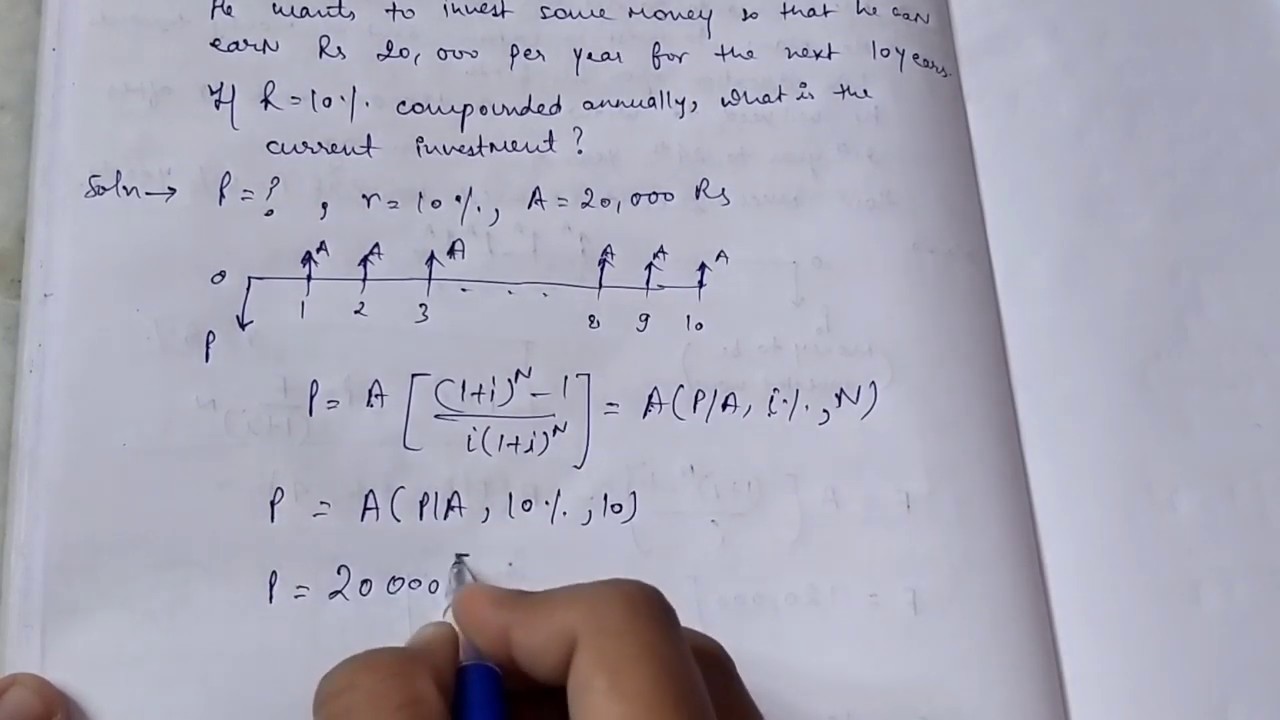 He wants to invest some money so that he can
earn Rs 20,000 per year for the next 10 years.
If R = 10%. compounded annually, what is the
current investment?
Soln → P = ? , r = 10%., A = 20,000 Rs
A A A A A A
0
1 2 3 . . . 8 9 10
P
P = A [ (1+i)^N - 1 / i(1+i)^N ] = A(P/A, i%., N)
P = A(P/A, 10%., 10)
P = 20000